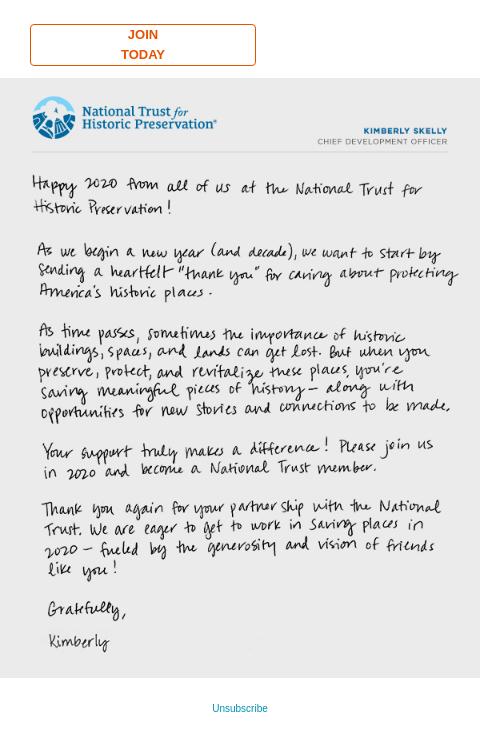 JOIN
TODAY
National Trust for
Historic Preservation®
KIMBERLY SKELLY
CHIEF DEVELOPMENT OFFICER
Happy 2020 from all of us at the National Trust for
Historic Preservation!
As we begin a new year (and decade), we want to start by
sending a heartfelt "thank you" for caring about protecting
America's historic places.
As time passes, sometimes the importance of historic
buildings, spaces, and lands can get lost. But when you
preserve, protect, and revitalize these places, you're
saving meaningful pieces of history — along with
opportunities for new stories and connections to be made.
Your support truly makes a difference! Please join us
in 2020 and become a National Trust member.
Thank you again for your partnership with the National
Trust. We are eager to get to work in saving places in
2020 — fueled by the generosity and vision of friends
like you!
Gratefully,
Kimberly
Unsubscribe